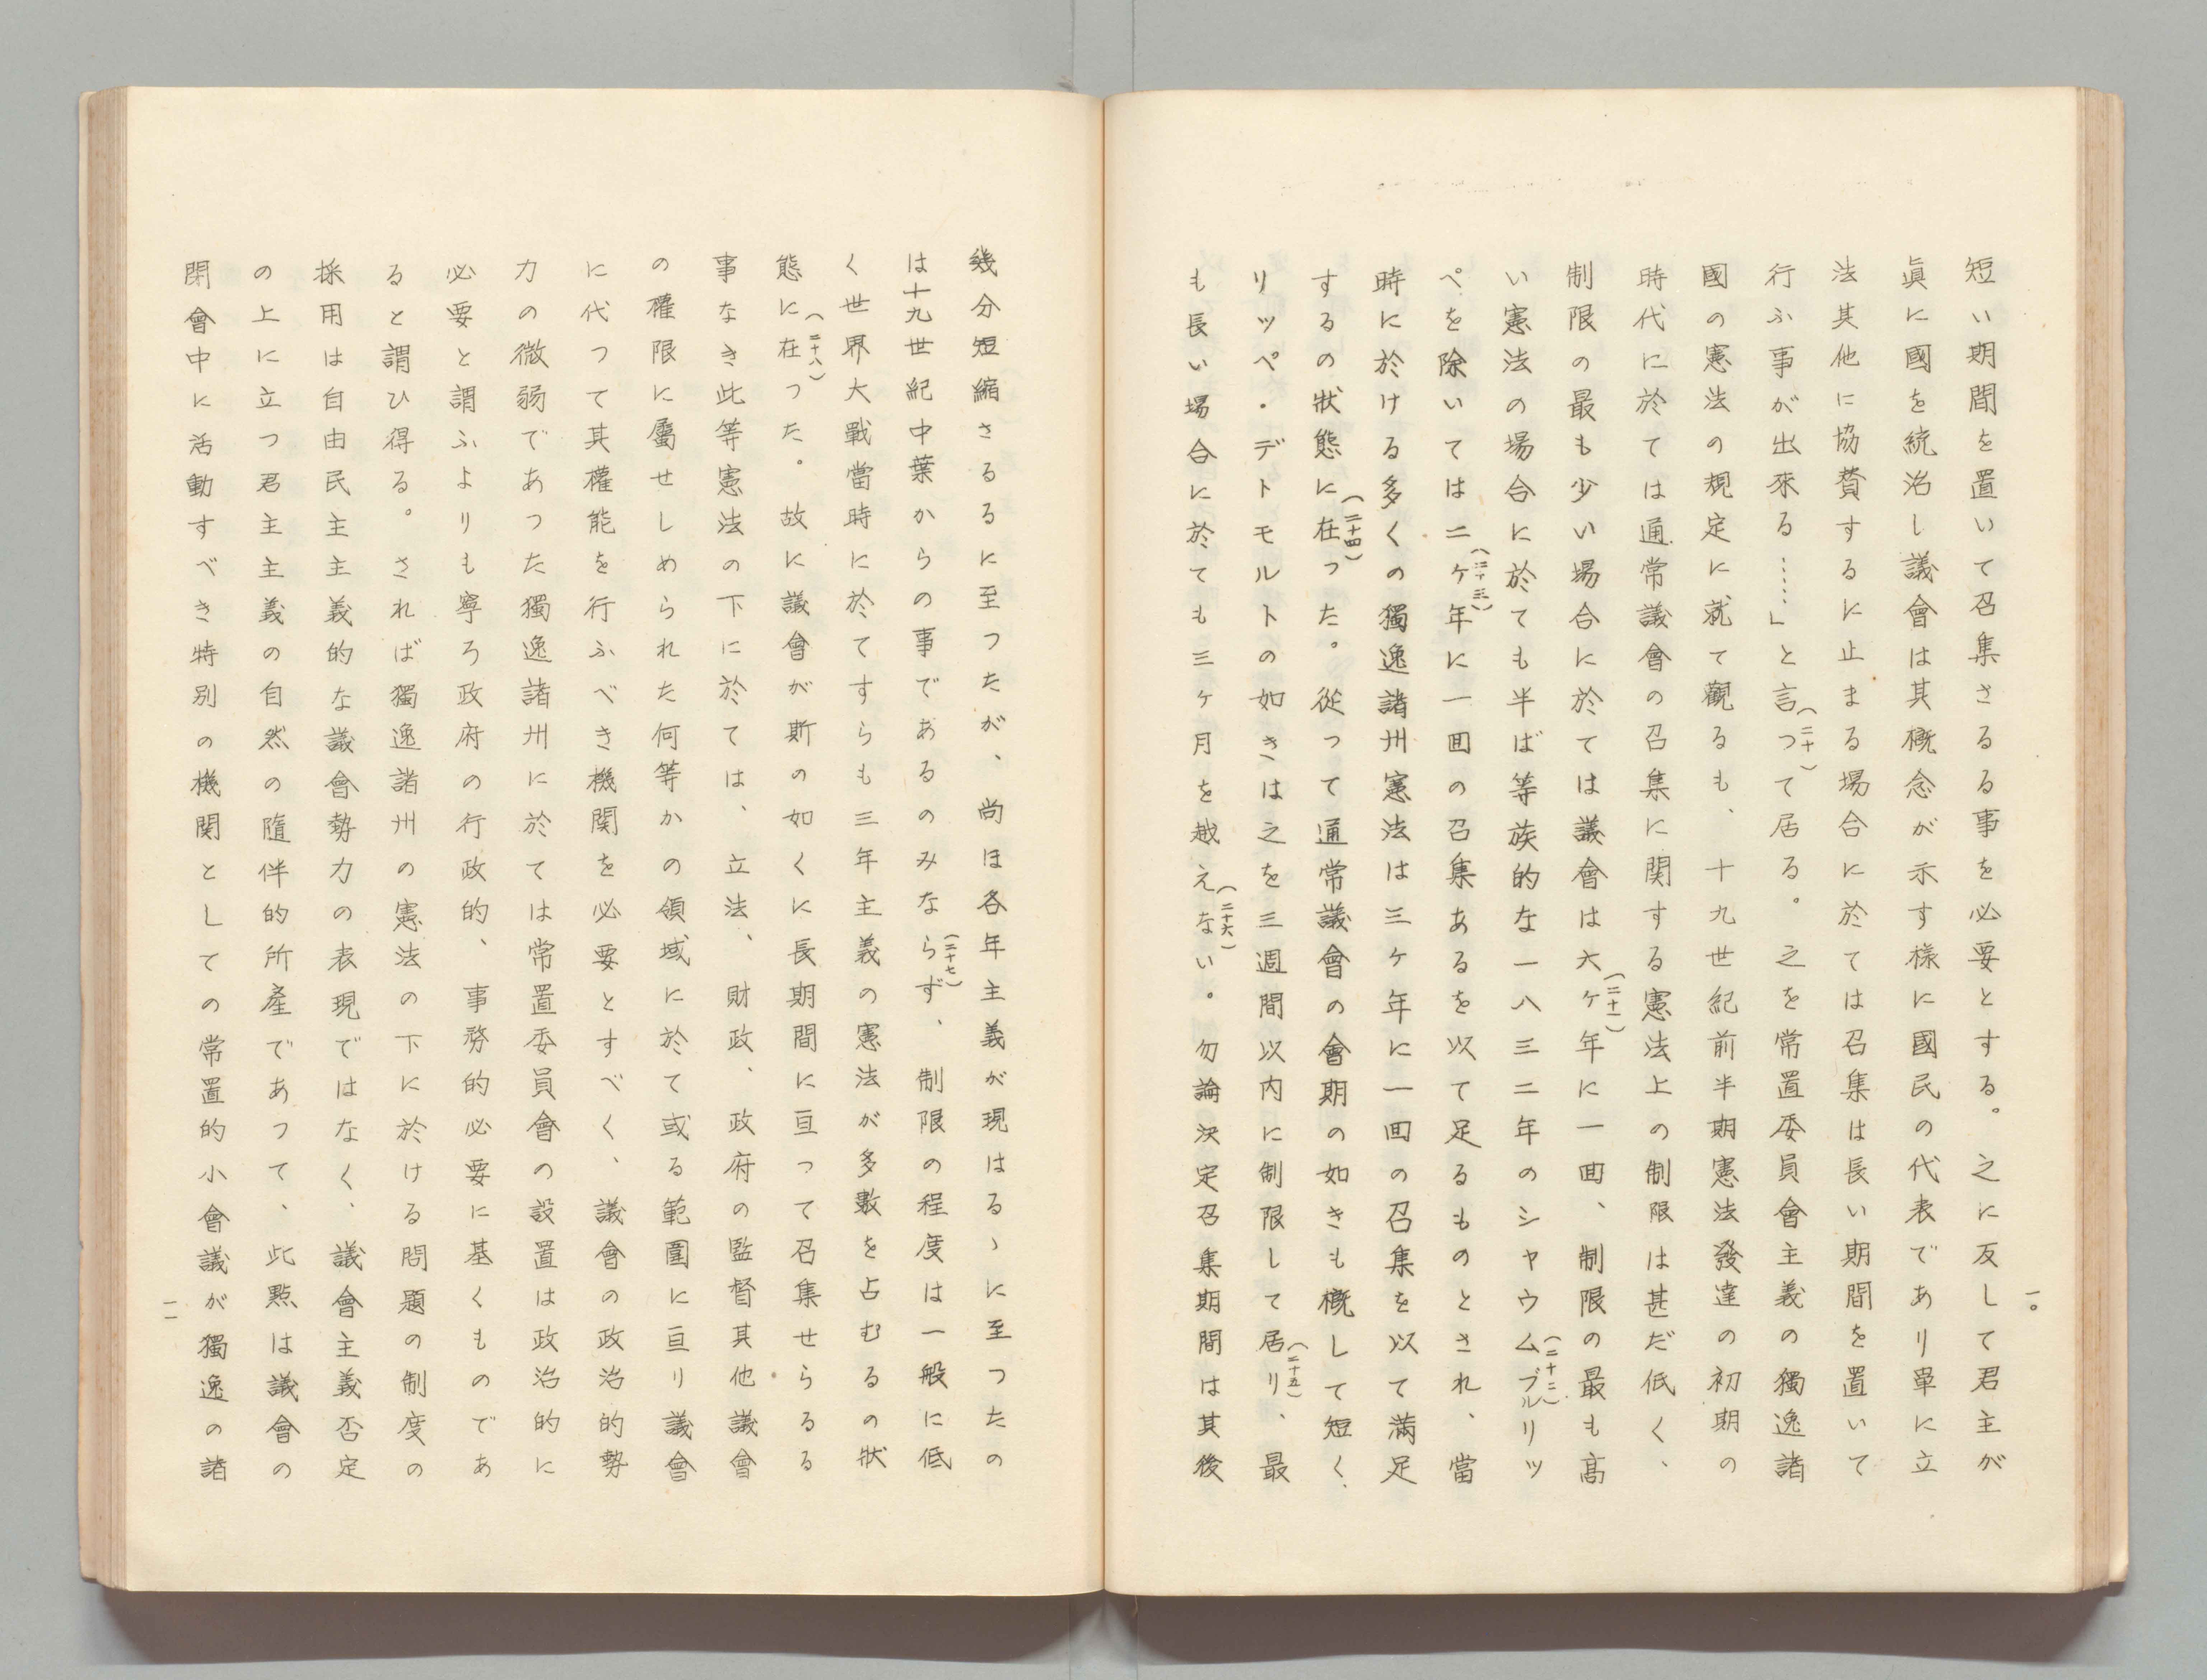 一〇
短い期間を置いて召集さるる事を必要とする。之に反して君主が
眞に國を統治し議會は其概念が示す樣に國民の代表であり單に立
法其他に協賛するに止まる場合に於ては召集は長い期間を置いて
行ふ事が出來る……」と言つて居る。之を常置委員會主義の獨逸諸
(二十)
國の憲法の規定に就て觀るも、十九世紀前半期憲法發達の初期の
時代に於ては通常議會の召集に関する憲法上の制限は甚だ低く、
制限の最も少い場合に於ては議會は六ヶ年に一回、制限の最も高
(二十一)
い憲法の場合に於ても半ば等族的な一八三二年のシャウムブルリッ
(二十二)
ペを除いては二ヶ年に一回の召集あるを以て足るものとされ、當
(二十三)
時に於ける多くの獨逸諸州憲法は三ヶ年に一回の召集を以て満足
するの狀態に在った。從って通常議會の會期の如きも概して短く、
(二十四)
リッペ・デトモルトの如きは之を三週間以内に制限して居り、最
(二十五)
も長い場合に於ても三ヶ月を越えない。勿論決定召集期間は其後
(二十六)
幾分短縮さるるに至つたが、尚ほ各年主義が現はるゝに至つたの
は十九世紀中葉からの事であるのみならず、制限の程度は一般に低
(二十七)
く世界大戰當時に於てすらも三年主義の憲法が多數を占むるの狀
態に在った。故に議會が斯の如くに長期間に亘って召集せらるる
(二十八)
事なき此等憲法の下に於ては、立法、財政、政府の監督其他議會
の權限に屬せしめられた何等かの領域に於て或る範圍に亘り議會
に代つて其權能を行ふべき機関を必要とすべく、議會の政治的勢
力の微弱であつた獨逸諸州に於ては常置委員會の設置は政治的に
必要と謂ふよりも寧ろ政府の行政的、事務的必要に基くものであ
ると謂ひ得る。されば獨逸諸州の憲法の下に於ける問題の制度の
採用は自由民主主義的な議會勢力の表現ではなく、議會主義否定
の上に立つ君主主義の自然の隨伴的所產であつて、此點は議會の
閉會中に活動すべき特別の機関としての常置的小會議が獨逸の諸
一一